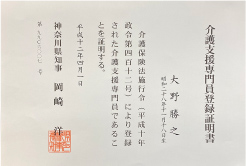 介護支援専門員登録証明書
大野勝之
昭和二十八年十一月十八日生
介護保険法施行令(平成十年
政令第四百十二号)により登録
された介護支援専門員であるこ
とを証明する。
平成十二年四月一日
神奈川県知事 岡崎 洋